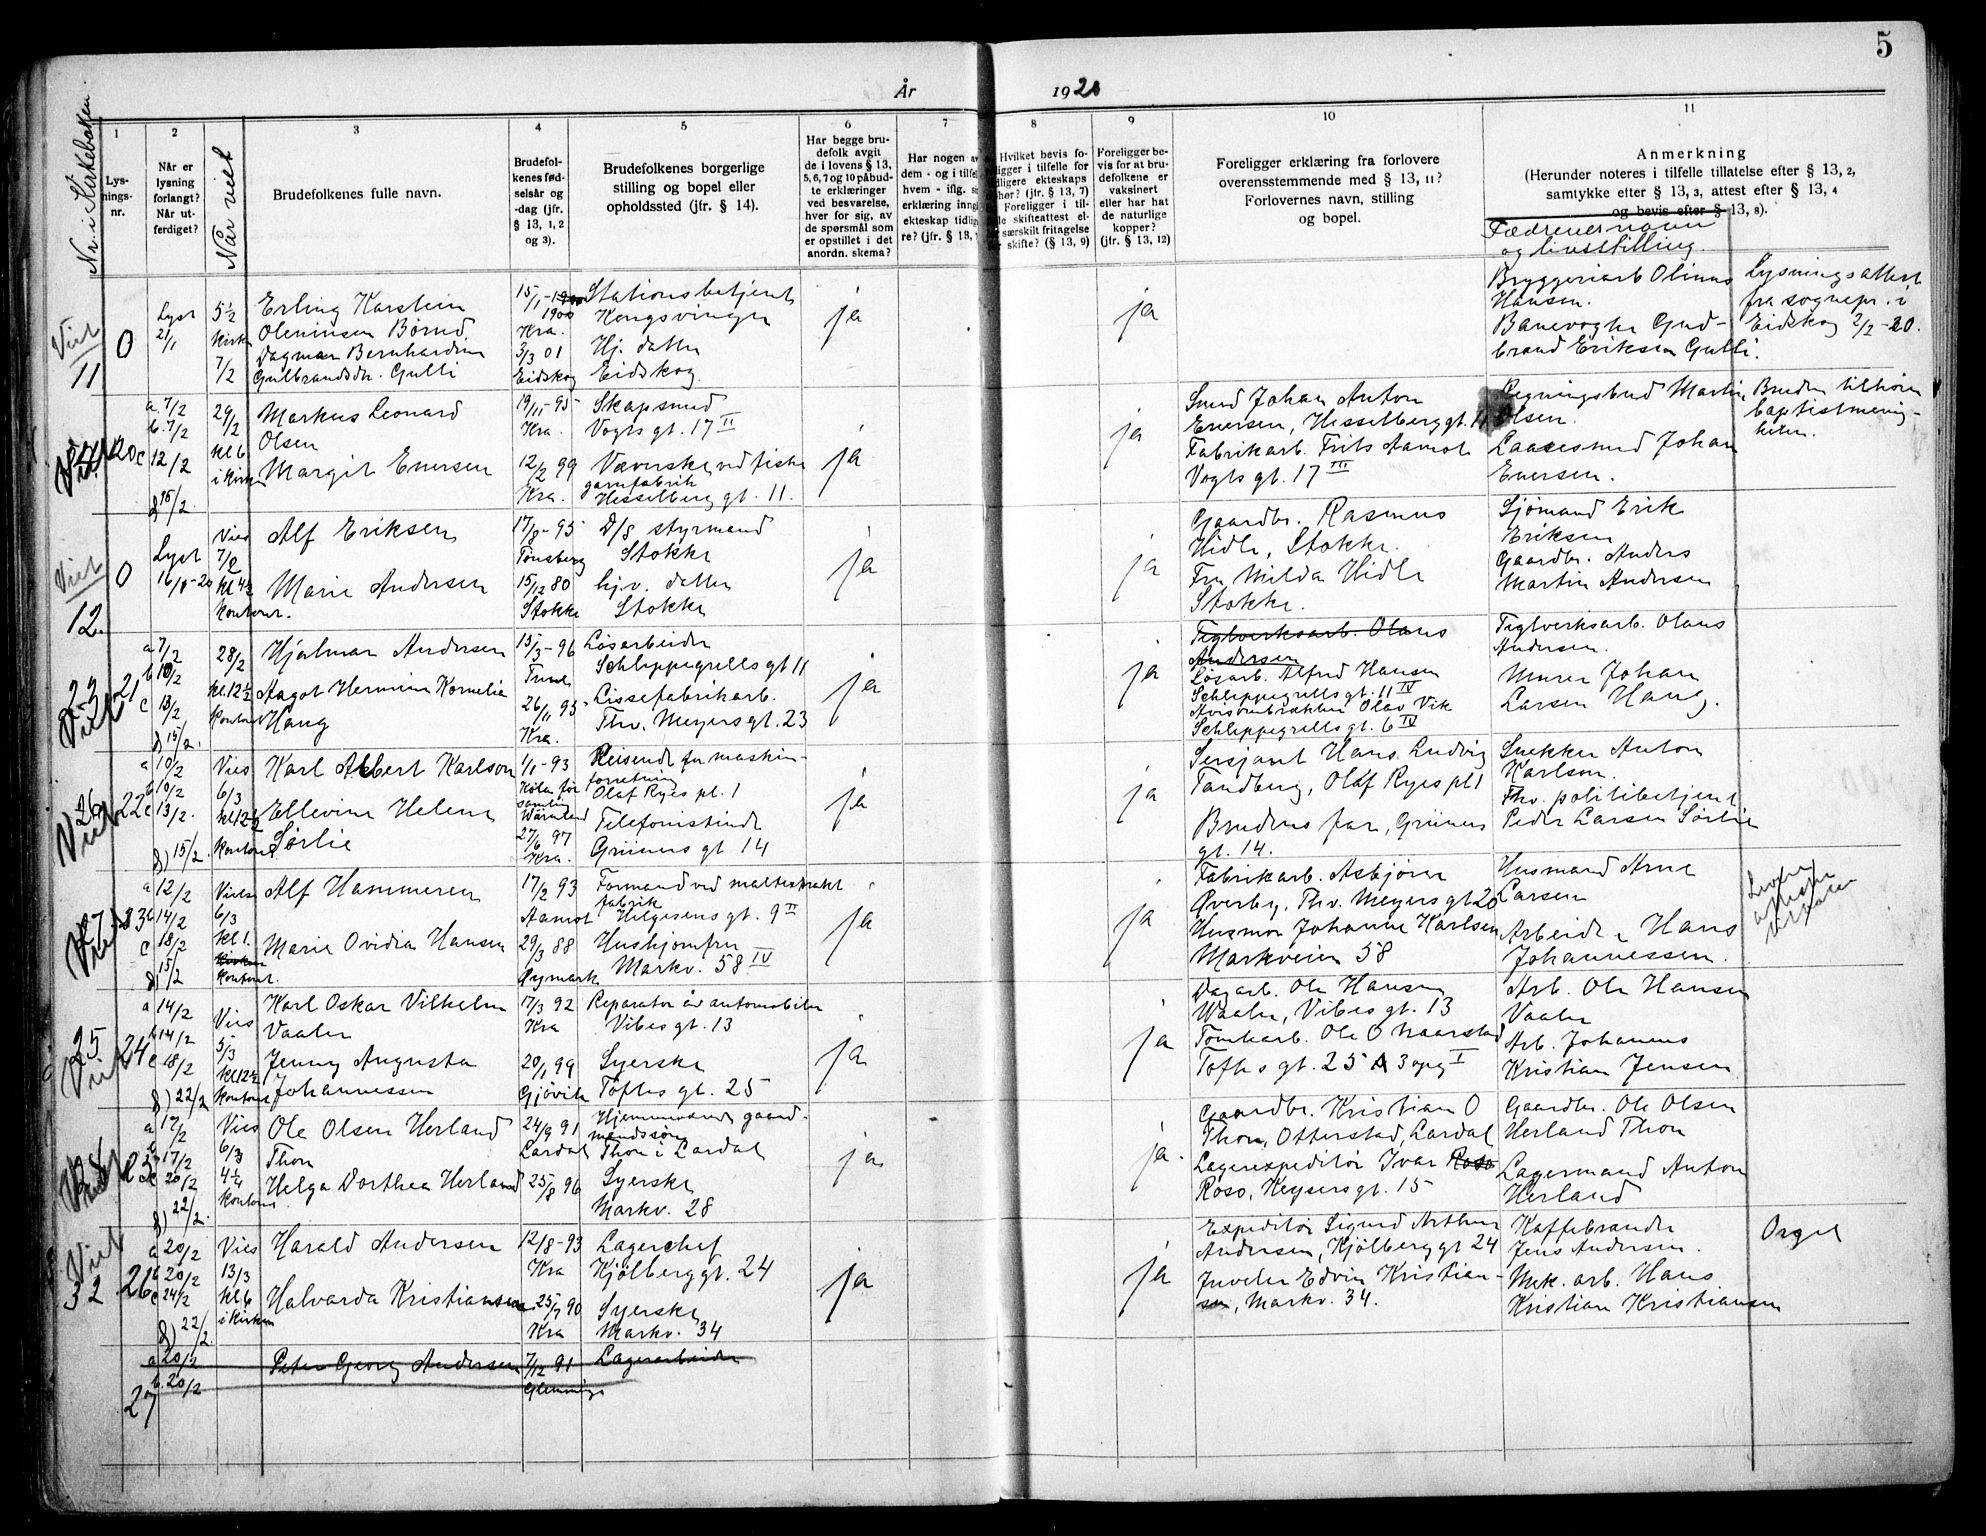 5
År 1920
Nr. i Kirkeboken
1
Lys-
nings-
nr.
2
Når er
lysning
forlangt?
Når ut-
ferdiget?
Når viet
3
Brudefolkenes fulle navn.
4
Brudefol-
kenes fød-
selsår og
-dag (jfr.
§ 13, 1, 2
og 3).
5
Brudefolkenes borgerlige
stilling og bopel eller
opholdssted (jfr. § 14).
6
Har begge bru-
defolk avgit
de i lovens § 13,
5, 6, 7 og 10 påbud-
te erklæringer
ved besvarelse,
hver for sig, av
de spørsmål som
er opstillet i det
anordn. skema?
7
Har nogen av
dem - og i tilfel
hvem - iflg.
erklæring inng
ekteskap tidlig
re? (jfr. § 13,
8
Hvilket bevis fo-
ligger i tilfelle for
dligere ekteskaps
phør? (jfr. § 13, 7)
Foreligger i til-
le skifteattest el-
særskilt fritagelse
skifte? (§ 13, 9)
9
Foreligger be-
vis for at bru-
defolkene er
vaksinert
eller har hat
de naturlige
kopper?
(jfr. § 13, 12)
10
Foreligger erklæring fra forlovere
overensstemmende med § 13, 11?
Forlovernes navn, stilling
og bopel.
11
Anmerkning
(Herunder noteres i tilfelle tillatelse efter § 13, 2,
samtykke efter § 13, 3, attest efter § 13, 4
og bevis efter § 13, 8).
Fædrenes navn
og livsstilling.
Viet
11
0
Lyst
21/1
5 1/2
Kirken
7/2
Erling Karstein
Oleninsen Børud
Dagmar Bernhardine
Gulbrandsdr. Gulli
15/1-1900
Kra.
3/3 01
Eidskog
Stationsbetjent
Kongsvinger
Hj. datter
Eidskog
ja
ja
Bryggeriarb Olinus
Hansen.
Banevogter Gud-
brand Eriksen Gulli.
Lysningsattest
fra sognepr. i
Eidskog 2/2-20.
Viet
20
a. 7/2
b. 7/2
c 12/2
29/2
kl 6
i Kirken
Markus Leonard
Olsen
Margit Enersen
19/11-95
Kra.
12/2 99
Kra.
Skapsmed
Vogts gt. 17 II
Væverske ved fiske
garnfabrik
Hesselberg gt. 11.
ja
ja
Smed Johan Anton
Enersen, Hesselberg gt. 11
Fabrikarb. Frits Aamot
Vogts gt. 17 III
Regningsbud Martin
Olsen.
Laasesmed Johan
Enersen.
Bruden tilhører
baptistmenig-
heten.
Viet
12.
0
Lyst
16/1-20
Vies
7/2
kl 4 1/2
kontoret.
Alf Eriksen
Marie Andersen
17/8-95
Tønsberg
15/12 80
Stokke
D/S styrmand
Stokke
hjv. datter
Stokke
ja
ja
Gaardbr. Rasmus
Hidle, Stokke.
Fru Milda Hidle
Stokke.
Sjømand Erik
Eriksen
Gaardbr. Anders
Martin Andersen
Viet
21
a 7/2
b 10/2
c 13/2
d 15/2.
28/2
kl. 12 1/2
kontoret
Hjalmar Andersen
Aagot Hermine Kornelia
Haug
15/3-96
26/11 95
Kra.
Løsarbeider
Schleppegrells gt 11
Lissefabrikarb.
Thv. Meyers gt. 23
ja
ja
Teglverksarb. Olaus
Andersen
Løsarb. Alfred Hansen
Schleppegrells gt. 11 IV
Avisombrækker Olav Vik
Schleppegrells gt. 6 IV
Teglverksarb. Olaus
Andersen.
Murer Johan
Larsen Haug.
26
Viet
22
a 10/2
b 10/2
c 13/2.
d) 15/2.
Vies
6/3
kl 12 1/2
kontoret
Karl Albert Karlson
Ellevine Helene
Sørlie
1/1-93
Köla för
samling
Wärmland
27/6 97
Kra.
Reisende for maskin-
forretning
Olaf Ryes pl. 1
Telefonistinde
Grüners gt 14
ja
ja
Sersjant Hans Ludvig
Tandberg, Olaf Ryes pl 1
Brudens far, Grüners
gt. 14.
Snekker Anton
Karlson.
Fhv. politibetjent
Peder Larsen Sørlie
27
Viet
23
a 12/2
b 14/2
c 18/2
d) 15/2
Vies
6/3
kl 1.
Kirken
kontoret.
Alf Hammeren
Marie Ovidia Hansen
17/2 93
Aamot
29/3 88
Øymark
Formand ved maltextrakt
fabrik
Helgesens gt. 9 II
Husbjomfru
Markv. 58 IV
ja
ja
Fabrikarb. Asbjørn
Øverby, Thv. Meyers gt 20
Husmor Johanne Karlsen
Markveien 58
Husmand Arne
Larsen
Arbeider Hans
Johannessen.
25
Viet
24
a 14/2
b 14/2
c 18/2
d) 22/2
Vies
5/3
kl 12 1/2
kontoret
Karl Oskar Vilhelm
Vaaler
Jenny Augusta
Johannessen
17/3 92
Kra
20/1 99
Gjøvik
Reparatør av automobiler
Vibes gt. 13
Syerske
Toftes gt. 25
ja
ja
Dagarb. Ole Hansen
Waaler, Vibes gt. 13
Tomtearb. Ole O Naarstad
Toftes gt. 25 A 3 opg I
Arb. Ole Hansen
Vaaler
Arb. Johannes
Kristian Jensen
Viet
a 17/2
b 17/2
c 20/2
d) 22/2.
Vies
6/3
4 1/4
kontoret
Ole Olsen Herland
Thon
Helga Dorthea Herland
24/9 91
Lardal
25/8 96
Hjemmeværende gaard-
mandssøn
Thon i Lardal
Syerske
Markv. 28
ja
ja.
Gaardbr. Kristian O
Thon, Otterstad, Lardal
Lagerexpeditør Ivar Roso
Roso, Keysers gt. 15
Gaardbr. Ole Olsen
Herland Thon
Lagermand Anton
Herland
Viet
32
26
a 20/2
b 20/2
c 24/2
d) 22/2.
Vies
13/3
kl 6
i Kirken
Harald Andersen
Halvarda Kristiansen
12/8-93
Kra
25/7 90
Kra
Lagerchef
Kjølberg gt. 24
Syerske
Markv. 34
ja
ja
Expeditør Sigurd Arthur
Andersen, Kjølberg gt 24
Juveler Edvin Kristian-
sen, Markv. 34.
Kaffebrænder
Jens Andersen.
Mek. arb. Hans
Kristian Kristiansen
Orgel
27
a 20/2
b. 20/2
Peter Georg Andersen
7/12 91
Glemminge
Lagerarbeider